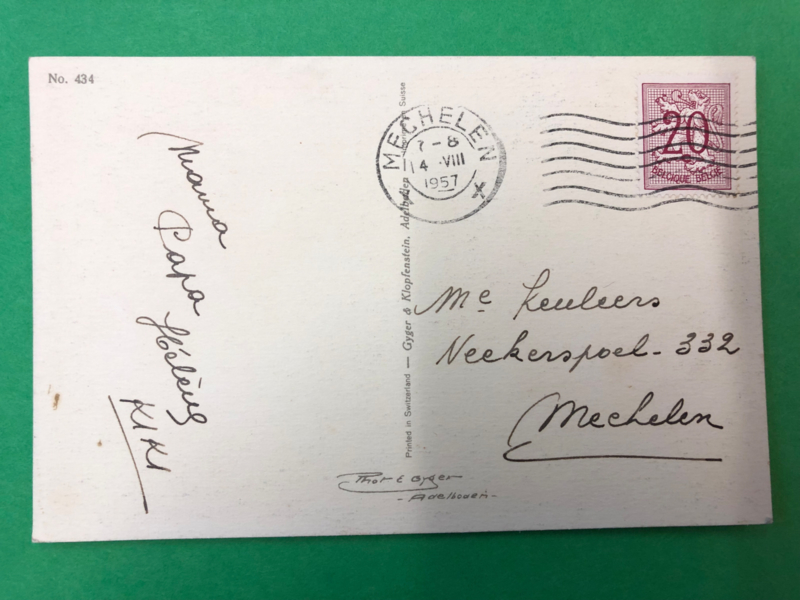 No. 434
Mama
Papa
Hélène
KIKI
Printed in Switzerland — Gyger & Klopfenstein, Adelboden Suisse
MECHELEN
7 - 8
14 VIII
1957
20
c
BELGIQUE BELGIE
Me Keuleers
Neekerspoel - 332
Mechelen
Phot E Gyger
- Adelboden -